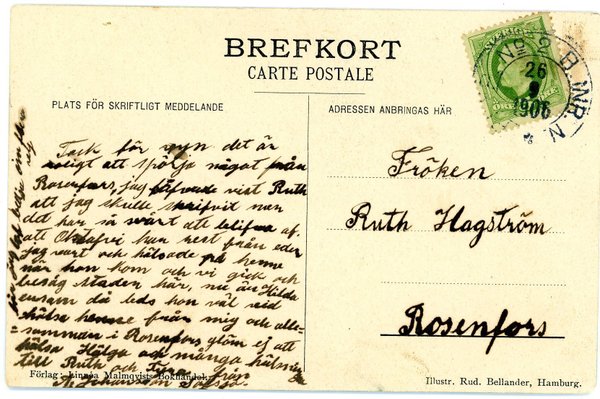 BREFKORT
CARTE POSTALE
PLATS FÖR SKRIFTLIGT MEDDELANDE
ADRESSEN ANBRINGAS HÄR
SVERIGE
26
9
1906
Tack för vyn det är
roligt att spörja något från
Rosenfors, jag visst Ruth
att jag skulle skrifvit men
det har så svårt att blifva af.
att kan rest från eder
jag vart och hälsade på henne
när hon kom och vi gick och
besåg staden här, nu är Hilda
ensam då leds hon väl vid
hälsa henne från mig och alle-
samman i Rosenfors glöm ej att
hälsa Hälga och många hälsning
till Ruth och från
Fröken
Ruth Hagström
Rosenfors
Förlag: Linnéa Malmqvists Bokhandel.
Illustr. Rud. Bellander, Hamburg.